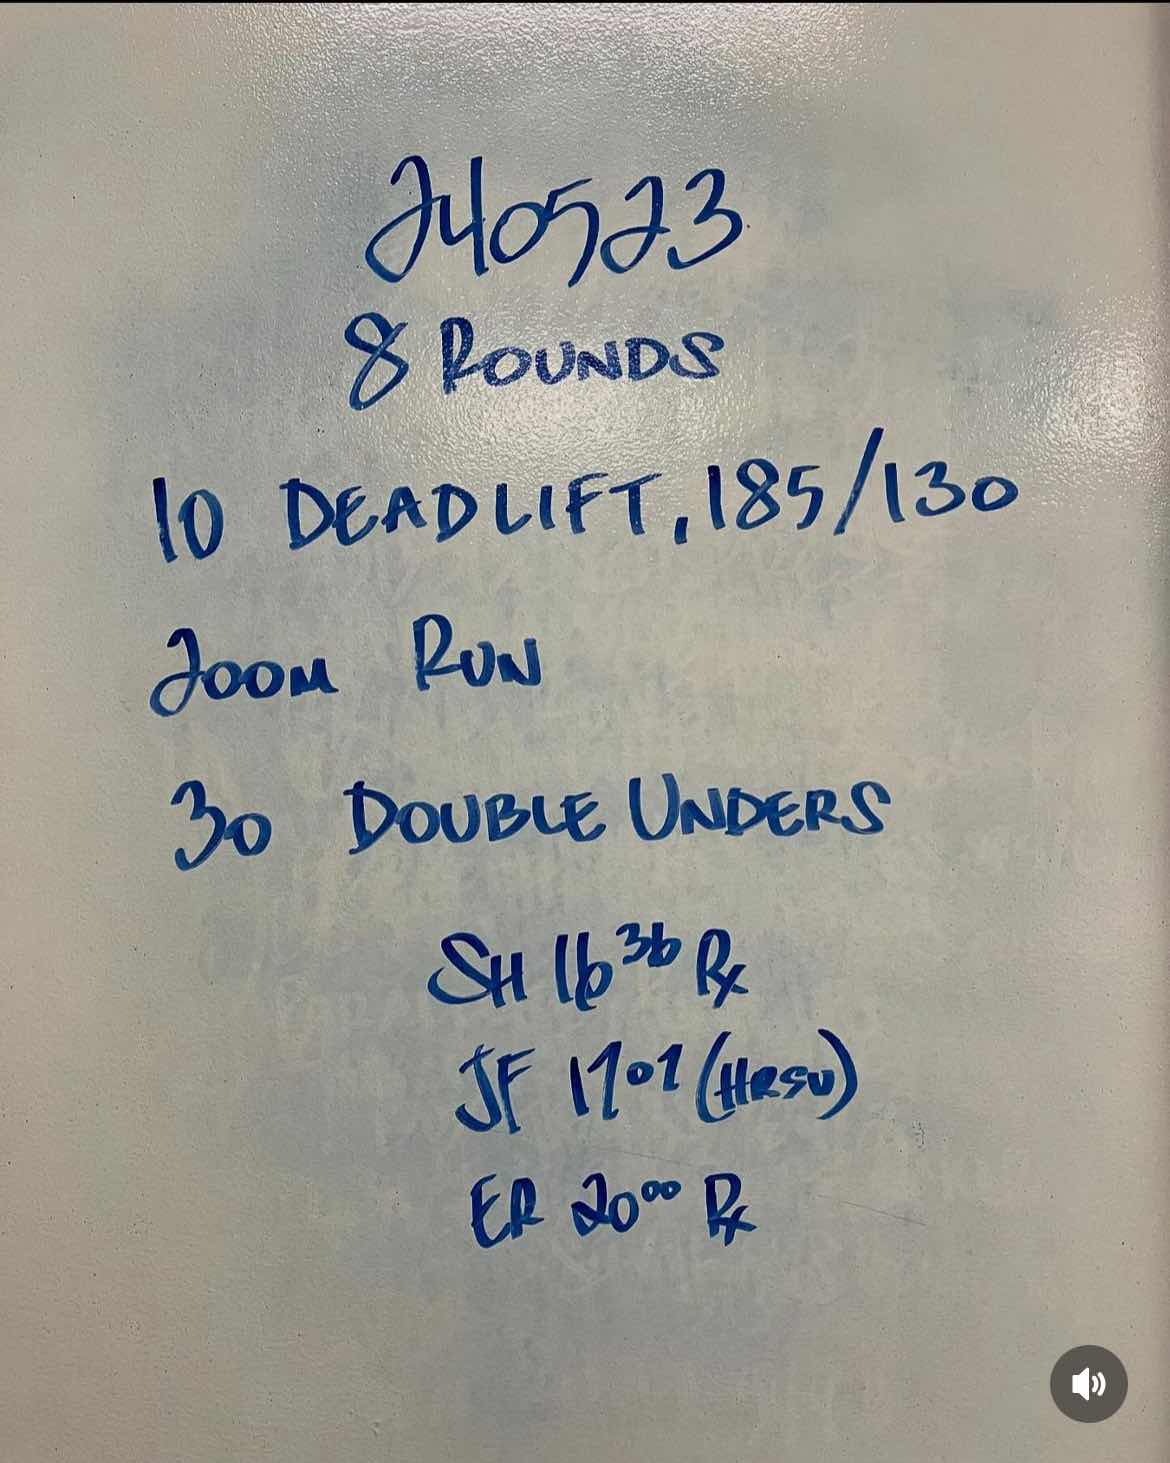 240523
8 ROUNDS
10 DEADLIFT, 185/130
200M RUN
30 DOUBLE UNDERS
SH 16³⁶ Rx
JF 17⁰⁷ (HRSU)
ER 20⁰⁰ Rx